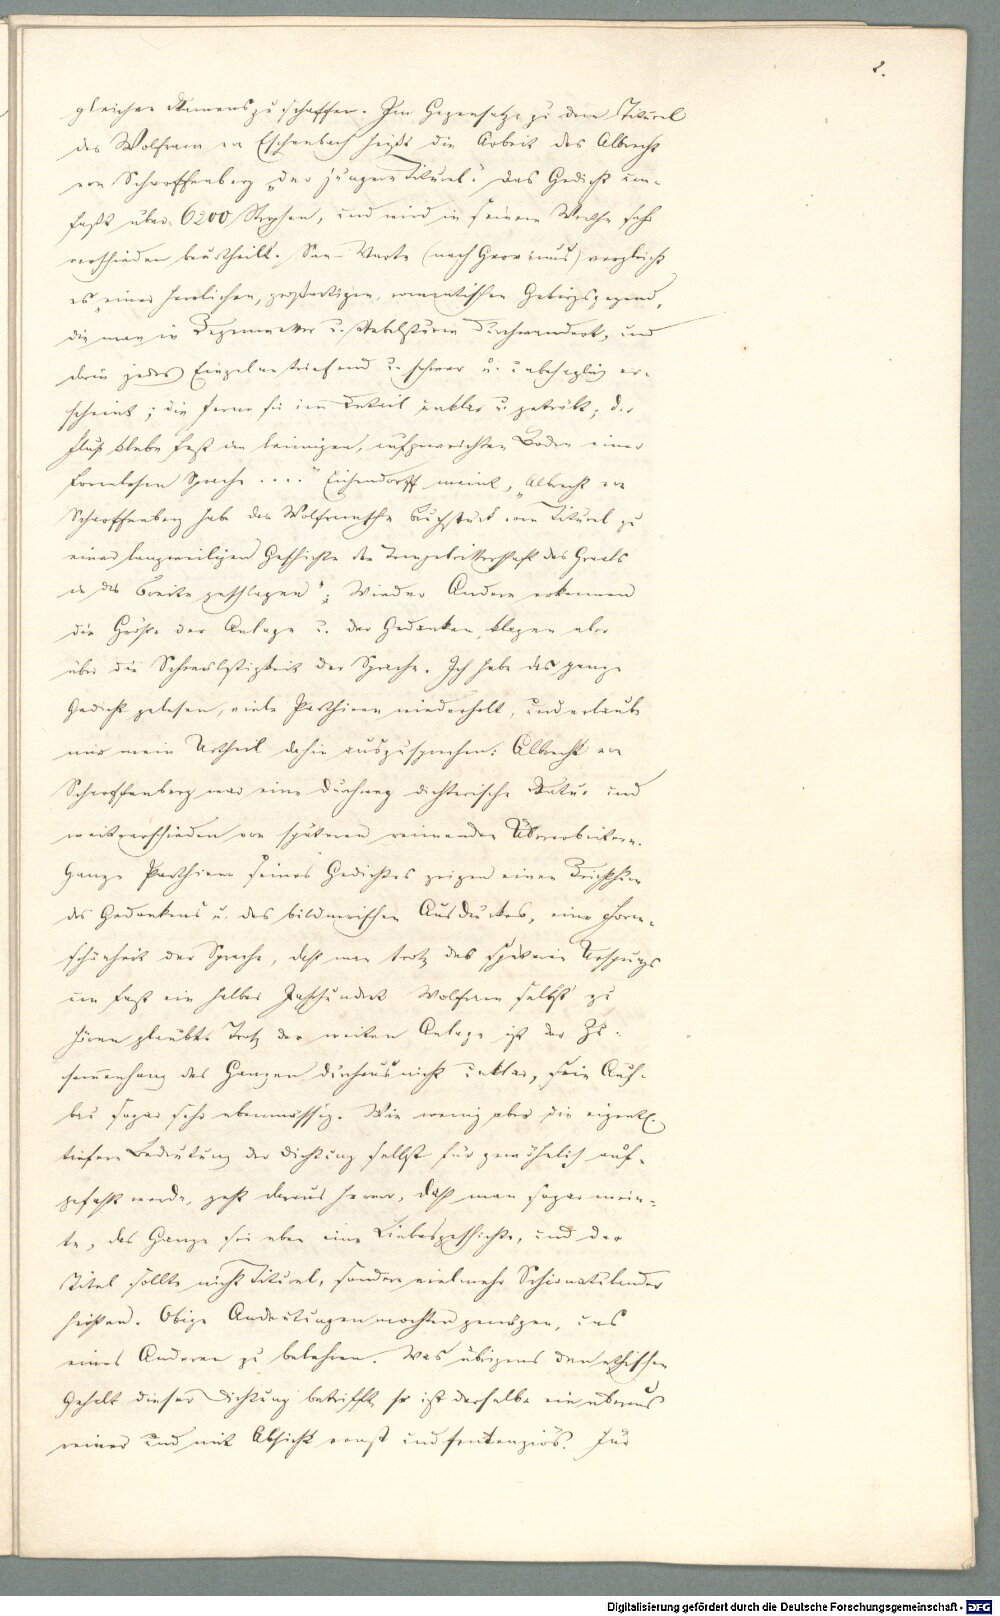 2.
gleichen Namens zu schaffen. Im Gegensatze zu dem Titurel
des Wolfram von Eschenbach heißt die Arbeit des Albrecht
von Scharffenberg „der jüngere Titurel." Das Gedicht um-
faßt über 6200 Strophen, und wird in seinem Werthe sehr
verschieden beurtheilt. San-Marte (nach Gervinus) vergleicht
es „einer herrlichen, großartigen, romantischen Gebirgsgegend,
die man in Regenwetter u. Nebelsturm durchwandert, und
darin jedes Einzelne triefend u. schwer u. unbehaglich er-
scheint; die Ferne sei im Detail unklar u. getrübt; der
Fluß klebe fest am leimigen, aufgeweichten Boden einer
formlosen Sprache . . . ." Eichendorff meint, „Albrecht von
Scharffenberg habe das Wolframsche Buchstück vom Titurel zu
einer langweiligen Geschichte der Tempelritterschaft des Graals
in die Breite geschlagen"; Wieder Andere erkennen
die Größe der Anlage u. der Gedanken, klagen aber
über die Schwulstigkeit der Sprache. Ich habe das ganze
Gedicht gelesen, viele Parthieen wiederholt, und erlaube
mir mein Urtheil dahin auszusprechen: Albrecht von
Scharffenberg war eine durchweg dichterische Natur und
weit verschieden von späteren reimenden Überarbeitern.
Ganze Parthieen seines Gedichtes zeigen einen Reichthum
des Gedankens u. des bildnerischen Ausdruckes, eine Form-
schönheit der Sprache, daß man trotz des späteren Ursprungs
um fast ein halbes Jahrhundert Wolfram selbst zu
hören glaubt. Trotz der weiten Anlage ist der Zu-
sammenhang des Ganzen durchaus nicht unklar, sein Auf-
bau sogar sehr ebenmässig. Wie wenig aber die eigentl.
tiefere Bedeutung der Dichtung selbst für gewöhnlich auf-
gefaßt werde, geht daraus hervor, daß man sogar mein-
te, das Ganze sei eben eine Liebesgeschichte, und der
Titel sollte nicht Titurel, sondern vielmehr Schionatulander
heißen. Obige Andeutungen mochten genügen, uns
eines Anderen zu belehren. Was übrigens den ethischen
Gehalt dieser Dichtung betrifft, so ist derselbe ein überaus
reiner und mit Absicht ernst und sentenziös. Für
Digitalisierung gefördert durch die Deutsche Forschungsgemeinschaft - DFG